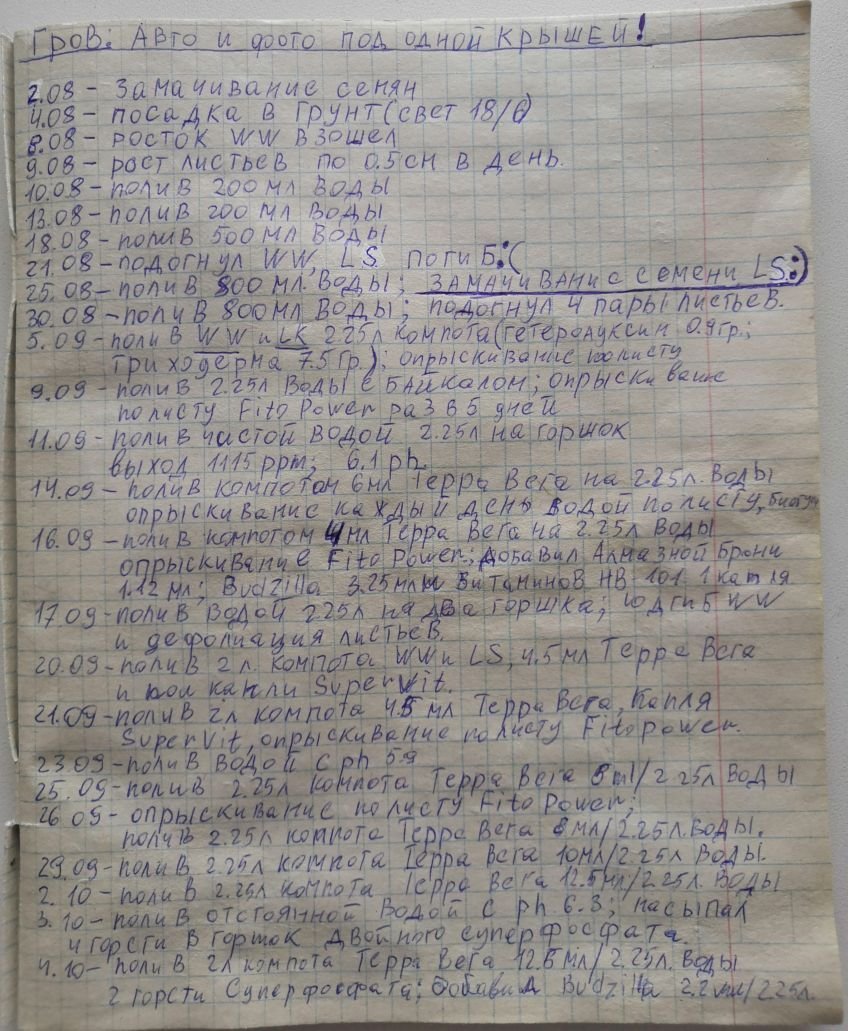 Гров: Авто и фото под одной крышей!
2.08 - Замачивание семян
4.08 - посадка в грунт (свет 18/6)
8.08 - росток WW взошел
9.08 - рост листьев по 0.5см в день.
10.08 - полив 200 мл воды
13.08 - полив 200 мл воды
18.08 - полив 500 мл воды
21.08 - подогнул WW, LS погиб :(
25.08 - полив 800 мл воды; замачивание семени LS :)
30.08 - полив 800 мл воды; подогнул 4 пары листьев.
5.09 - полив WW и LK 2.25л компота (гетероауксин 0.9гр.;
триходерма 7.5гр.); опрыскивание по листу
9.09 - полив 2.25л воды с Байкалом; опрыскивание
по листу Fito Power раз в 5 дней
11.09 - полив чистой водой 2.25л на горшок
выход 1115 ppm; 6.1 ph.
14.09 - полив компотом 6мл Терра Вега на 2.25л. воды
опрыскивание каждый день водой по листу,
16.09 - полив компотом 4мл Терра Вега на 2.25л воды
опрыскивание Fito Power; добавил Алмазной Брони
1.12 мл; Budzilla 3.25мл и Витаминов HB-101 1 капля
17.09 - полив водой 2.25л на два горшка; WW
и дефолиация листьев.
20.09 - полив 2л. компота WW и LS, 4.5мл Терра Вега
и капли SuperVit.
21.09 - полив 2л компота 4.5 мл Терра Вега, Капля
SuperVit, опрыскивание по листу Fitopower.
23.09 - полив водой с ph 5.9
25.09 - полив 2.25л компота Терра Вега 8ml/2.25л воды
26.09 - опрыскивание по листу Fito Power;
полив 2.25л компота Терра Вега 8мл/2.25л. воды.
29.09 - полив 2.25л компота Терра Вега 10мл/2.25л воды.
2.10 - полив 2.25л компота Терра Вега 12.5мл/2.25л. воды
3.10 - полив отстоянной водой с ph 6.3; насыпал
4 горсти в горшок двойного суперфосфата.
4.10 - полив 2л компота Терра Вега 12.5мл/2.25л. воды
2 горсти Суперфосфата; добавил Budzilla 2.2мл/2.25л.